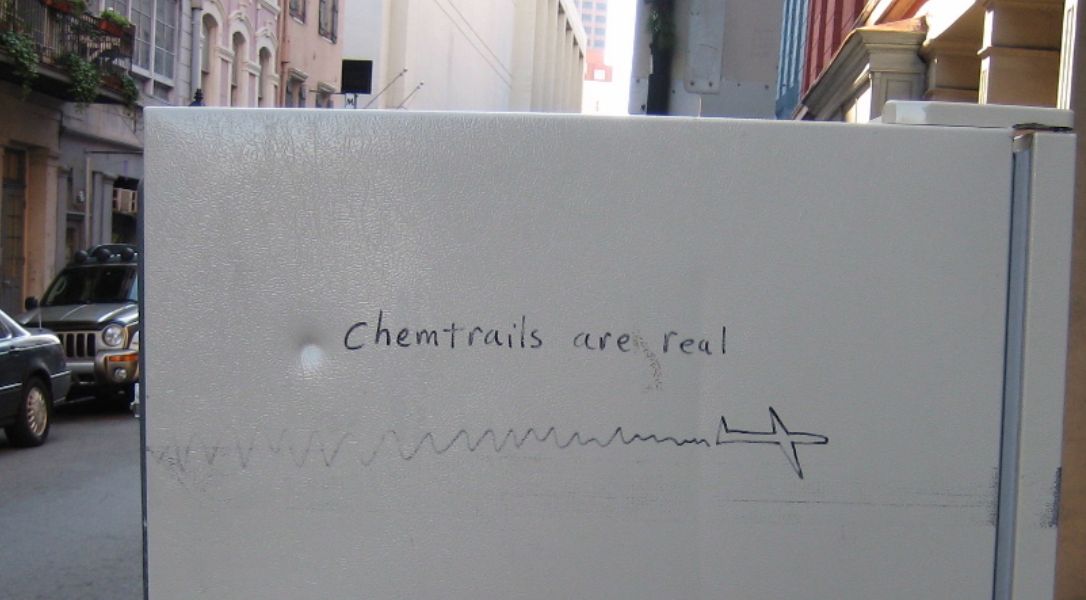 Chemtrails are real